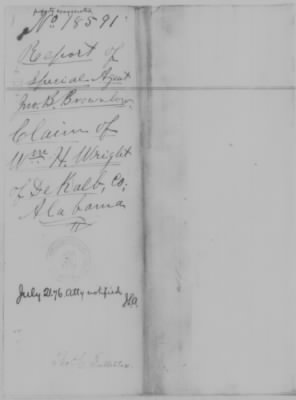 No 18591
Report of
special Agent
Jno. B. Brownlow.
Claim of
Wm H. Wright
of De Kalb, Co,
Alabama
July 21 76 Atty notified